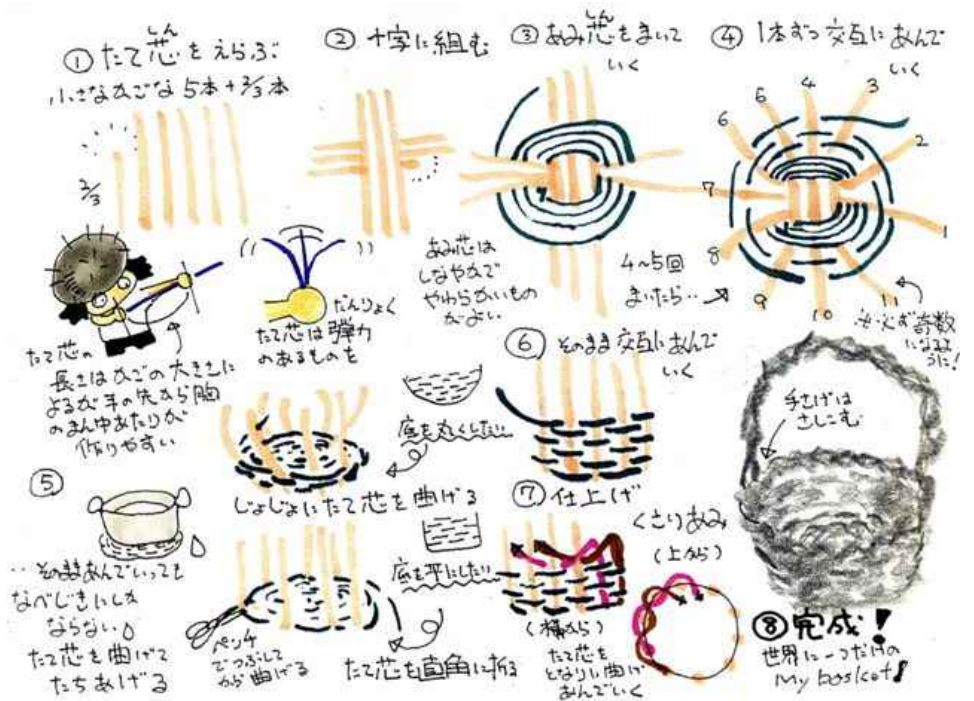 ① たて芯をえらぶ
しん
小さなかごなら5本+2/3本
2/3
たて芯の
長さはかごの大きさに
よるが手の先から胸
のまん中あたりが
作りやすい
だんりょく
たて芯は弾力
のあるものを
② 十字に組む
③ あみ芯をまいて
しん
いく
あみ芯は
しなやかで
やわらかいもの
がよい
④ 1本ずつ交互にあんで
いく
1
2
3
4
5
6
7
8
9
10
11
4~5回
まいたら‥
必ず奇数
になるよ
うに!
⑤
‥そのままあんでいっても
なべしきにしか
ならない
たて芯を曲げて
たちあげる
底を丸くしたい
じょじょにたて芯を曲げる
底を平にしたい
ペンチ
でつぶして
から曲げる
たて芯を直角に折る
⑥ そのまま交互にあんで
いく
⑦ 仕上げ
くさりあみ
(上から)
(横から)
たて芯を
となりに曲げ
あんでいく
手さげは
さしこむ
⑧ 完成!
世界に一つだけの
My basket!